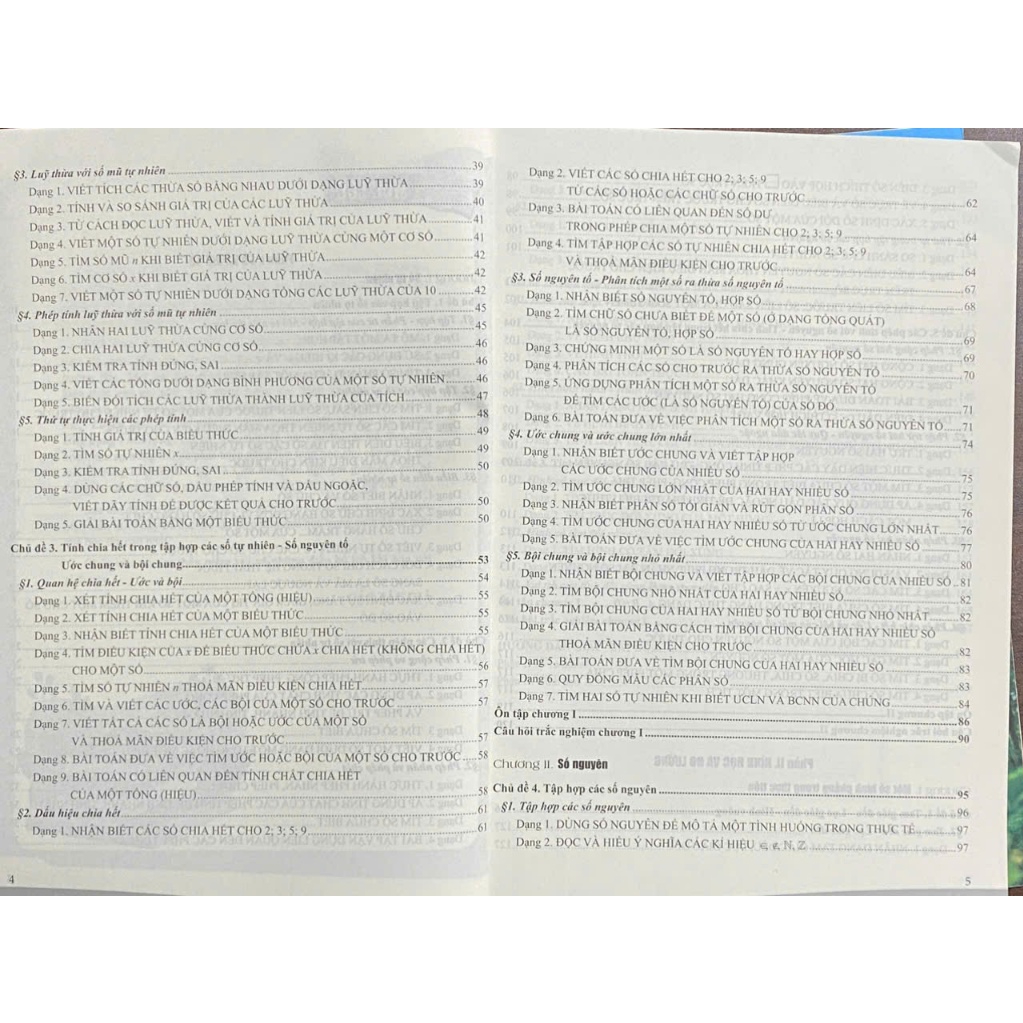 §3. Luỹ thừa với số mũ tự nhiên 39
Dạng 1. VIẾT TÍCH CÁC THỪA SỐ BẰNG NHAU DƯỚI DẠNG LUỸ THỪA 39
Dạng 2. TÍNH VÀ SO SÁNH GIÁ TRỊ CỦA CÁC LUỸ THỪA 40
Dạng 3. TỪ CÁCH ĐỌC LUỸ THỪA, VIẾT VÀ TÍNH GIÁ TRỊ CỦA LUỸ THỪA 41
Dạng 4. VIẾT MỘT SỐ TỰ NHIÊN DƯỚI DẠNG LUỸ THỪA CÙNG MỘT CƠ SỐ 41
Dạng 5. TÌM SỐ MŨ n KHI BIẾT GIÁ TRỊ CỦA LUỸ THỪA 42
Dạng 6. TÌM CƠ SỐ x KHI BIẾT GIÁ TRỊ CỦA LUỸ THỪA 42
Dạng 7. VIẾT MỘT SỐ TỰ NHIÊN DƯỚI DẠNG TỔNG CÁC LUỸ THỪA CỦA 10 42
§4. Phép tính luỹ thừa với số mũ tự nhiên 45
Dạng 1. NHÂN HAI LUỸ THỪA CÙNG CƠ SỐ 45
Dạng 2. CHIA HAI LUỸ THỪA CÙNG CƠ SỐ 46
Dạng 3. KIỂM TRA TÍNH ĐÚNG, SAI 46
Dạng 4. VIẾT CÁC TỔNG DƯỚI DẠNG BÌNH PHƯƠNG CỦA MỘT SỐ TỰ NHIÊN 46
Dạng 5. BIẾN ĐỔI TÍCH CÁC LUỸ THỪA THÀNH LUỸ THỪA CỦA TÍCH 47
§5. Thứ tự thực hiện các phép tính 48
Dạng 1. TÍNH GIÁ TRỊ CỦA BIỂU THỨC 49
Dạng 2. TÌM SỐ TỰ NHIÊN x 49
Dạng 3. KIỂM TRA TÍNH ĐÚNG, SAI 50
Dạng 4. DÙNG CÁC CHỮ SỐ, DẤU PHÉP TÍNH VÀ DẤU NGOẶC,
VIẾT DÃY TÍNH ĐỂ ĐƯỢC KẾT QUẢ CHO TRƯỚC 50
Dạng 5. GIẢI BÀI TOÁN BẰNG MỘT BIỂU THỨC 50
Chủ đề 3. Tính chia hết trong tập hợp các số tự nhiên - Số nguyên tố
Ước chung và bội chung 53
§1. Quan hệ chia hết - Ước và bội 54
Dạng 1. XÉT TÍNH CHIA HẾT CỦA MỘT TỔNG (HIỆU) 55
Dạng 2. XÉT TÍNH CHIA HẾT CỦA MỘT BIỂU THỨC 55
Dạng 3. NHẬN BIẾT TÍNH CHIA HẾT CỦA MỘT BIỂU THỨC 55
Dạng 4. TÌM ĐIỀU KIỆN CỦA x ĐỂ BIỂU THỨC CHỨA x CHIA HẾT (KHÔNG CHIA HẾT)
CHO MỘT SỐ 56
Dạng 5. TÌM SỐ TỰ NHIÊN n THOẢ MÃN ĐIỀU KIỆN CHIA HẾT 57
Dạng 6. TÌM VÀ VIẾT CÁC ƯỚC, CÁC BỘI CỦA MỘT SỐ CHO TRƯỚC 57
Dạng 7. VIẾT TẤT CẢ CÁC SỐ LÀ BỘI HOẶC ƯỚC CỦA MỘT SỐ
VÀ THOẢ MÃN ĐIỀU KIỆN CHO TRƯỚC 57
Dạng 8. BÀI TOÁN ĐƯA VỀ VIỆC TÌM ƯỚC HOẶC BỘI CỦA MỘT SỐ CHO TRƯỚC 58
Dạng 9. BÀI TOÁN CÓ LIÊN QUAN ĐẾN TÍNH CHẤT CHIA HẾT
CỦA MỘT TỔNG (HIỆU) 58
§2. Dấu hiệu chia hết 61
Dạng 1. NHẬN BIẾT CÁC SỐ CHIA HẾT CHO 2; 3; 5; 9 61
4
Dạng 2. VIẾT CÁC SỐ CHIA HẾT CHO 2; 3; 5; 9
TỪ CÁC SỐ HOẶC CÁC CHỮ SỐ CHO TRƯỚC 62
Dạng 3. BÀI TOÁN CÓ LIÊN QUAN ĐẾN SỐ DƯ
TRONG PHÉP CHIA MỘT SỐ TỰ NHIÊN CHO 2; 3; 5; 9 64
Dạng 4. TÌM TẬP HỢP CÁC SỐ TỰ NHIÊN CHIA HẾT CHO 2; 3; 5; 9
VÀ THOẢ MÃN ĐIỀU KIỆN CHO TRƯỚC 64
§3. Số nguyên tố - Phân tích một số ra thừa số nguyên tố 67
Dạng 1. NHẬN BIẾT SỐ NGUYÊN TỐ, HỢP SỐ 68
Dạng 2. TÌM CHỮ SỐ CHƯA BIẾT ĐỂ MỘT SỐ (Ở DẠNG TỔNG QUÁT)
LÀ SỐ NGUYÊN TỐ, HỢP SỐ 69
Dạng 3. CHỨNG MINH MỘT SỐ LÀ SỐ NGUYÊN TỐ HAY HỢP SỐ 69
Dạng 4. PHÂN TÍCH CÁC SỐ CHO TRƯỚC RA THỪA SỐ NGUYÊN TỐ 70
Dạng 5. ỨNG DỤNG PHÂN TÍCH MỘT SỐ RA THỪA SỐ NGUYÊN TỐ
ĐỂ TÌM CÁC ƯỚC (LÀ SỐ NGUYÊN TỐ) CỦA SỐ ĐÓ 71
Dạng 6. BÀI TOÁN ĐƯA VỀ VIỆC PHÂN TÍCH MỘT SỐ RA THỪA SỐ NGUYÊN TỐ 71
§4. Ước chung và ước chung lớn nhất 74
Dạng 1. NHẬN BIẾT ƯỚC CHUNG VÀ VIẾT TẬP HỢP
CÁC ƯỚC CHUNG CỦA NHIỀU SỐ 75
Dạng 2. TÌM ƯỚC CHUNG LỚN NHẤT CỦA HAI HAY NHIỀU SỐ 75
Dạng 3. NHẬN BIẾT PHÂN SỐ TỐI GIẢN VÀ RÚT GỌN PHÂN SỐ 76
Dạng 4. TÌM ƯỚC CHUNG CỦA HAI HAY NHIỀU SỐ TỪ ƯỚC CHUNG LỚN NHẤT 76
Dạng 5. BÀI TOÁN ĐƯA VỀ VIỆC TÌM ƯỚC CHUNG CỦA HAI HAY NHIỀU SỐ 77
§5. Bội chung và bội chung nhỏ nhất 80
Dạng 1. NHẬN BIẾT BỘI CHUNG VÀ VIẾT TẬP HỢP CÁC BỘI CHUNG CỦA NHIỀU SỐ 81
Dạng 2. TÌM BỘI CHUNG NHỎ NHẤT CỦA HAI HAY NHIỀU SỐ 82
Dạng 3. TÌM BỘI CHUNG CỦA HAI HAY NHIỀU SỐ TỪ BỘI CHUNG NHỎ NHẤT 82
Dạng 4. GIẢI BÀI TOÁN BẰNG CÁCH TÌM BỘI CHUNG CỦA HAI HAY NHIỀU SỐ
THOẢ MÃN ĐIỀU KIỆN CHO TRƯỚC 82
Dạng 5. BÀI TOÁN ĐƯA VỀ TÌM BỘI CHUNG CỦA HAI HAY NHIỀU SỐ 83
Dạng 6. QUY ĐỒNG MẪU CÁC PHÂN SỐ 83
Dạng 7. TÌM HAI SỐ TỰ NHIÊN KHI BIẾT ƯCLN VÀ BCNN CỦA CHÚNG 84
Ôn tập chương I 86
Câu hỏi trắc nghiệm chương I 90
Chương II. Số nguyên
Chủ đề 4. Tập hợp các số nguyên 95
§1. Tập hợp các số nguyên 96
Dạng 1. DÙNG SỐ NGUYÊN ĐỂ MÔ TẢ MỘT TÌNH HUỐNG TRONG THỰC TẾ 97
Dạng 2. ĐỌC VÀ HIỂU Ý NGHĨA CÁC KÍ HIỆU ∈, ∉, ℕ, ℤ 97
5